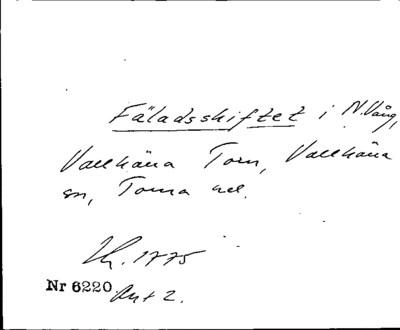 Fäladsskiftet i N. Vång,
Vallkärra Torn, Vallkärra
sn, Torna hd.
1775
Nr 6220 Akt 2.